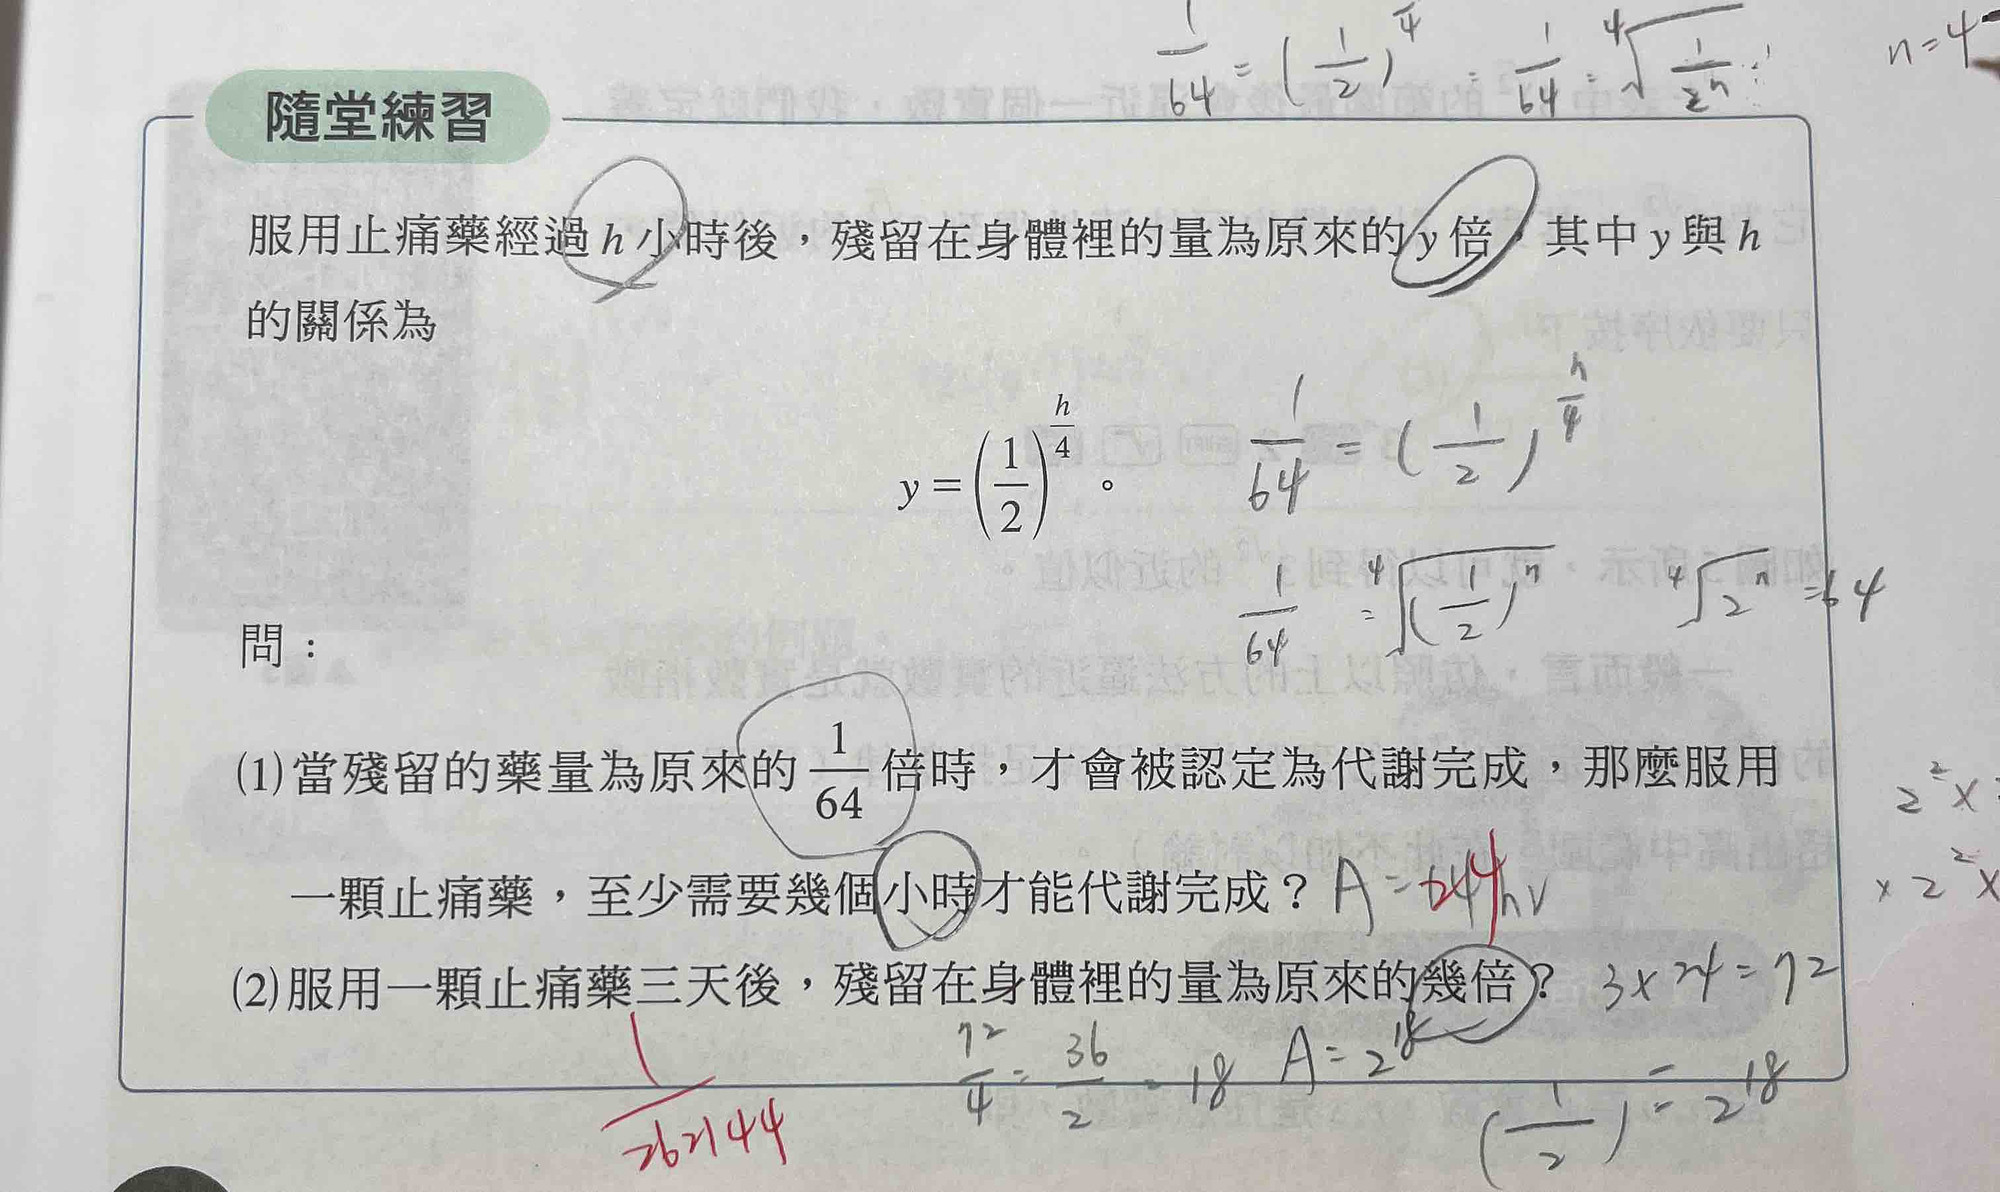 1/64 = (1/2)^4 = 1/64 = ⁴√(1/2ⁿ) n=4
隨堂練習
服用止痛藥經過 h 小時後，殘留在身體裡的量為原來的 y 倍，其中 y 與 h
的關係為
y = (1/2)^(h/4)。 1/64 = (1/2)^(h/4)
1/64 = ⁴√(1/2)ⁿ ⁴√2ⁿ = 64
問：
(1) 當殘留的藥量為原來的 1/64 倍時，才會被認定為代謝完成，那麼服用
2² ×
一顆止痛藥，至少需要幾個小時才能代謝完成？ A = 24
× 2² ×
(2) 服用一顆止痛藥三天後，殘留在身體裡的量為原來的幾倍？ 3 × 24 = 72
1/262144 72/4 = 36/2 = 18 A = 2^18
(1/2) = 2^18